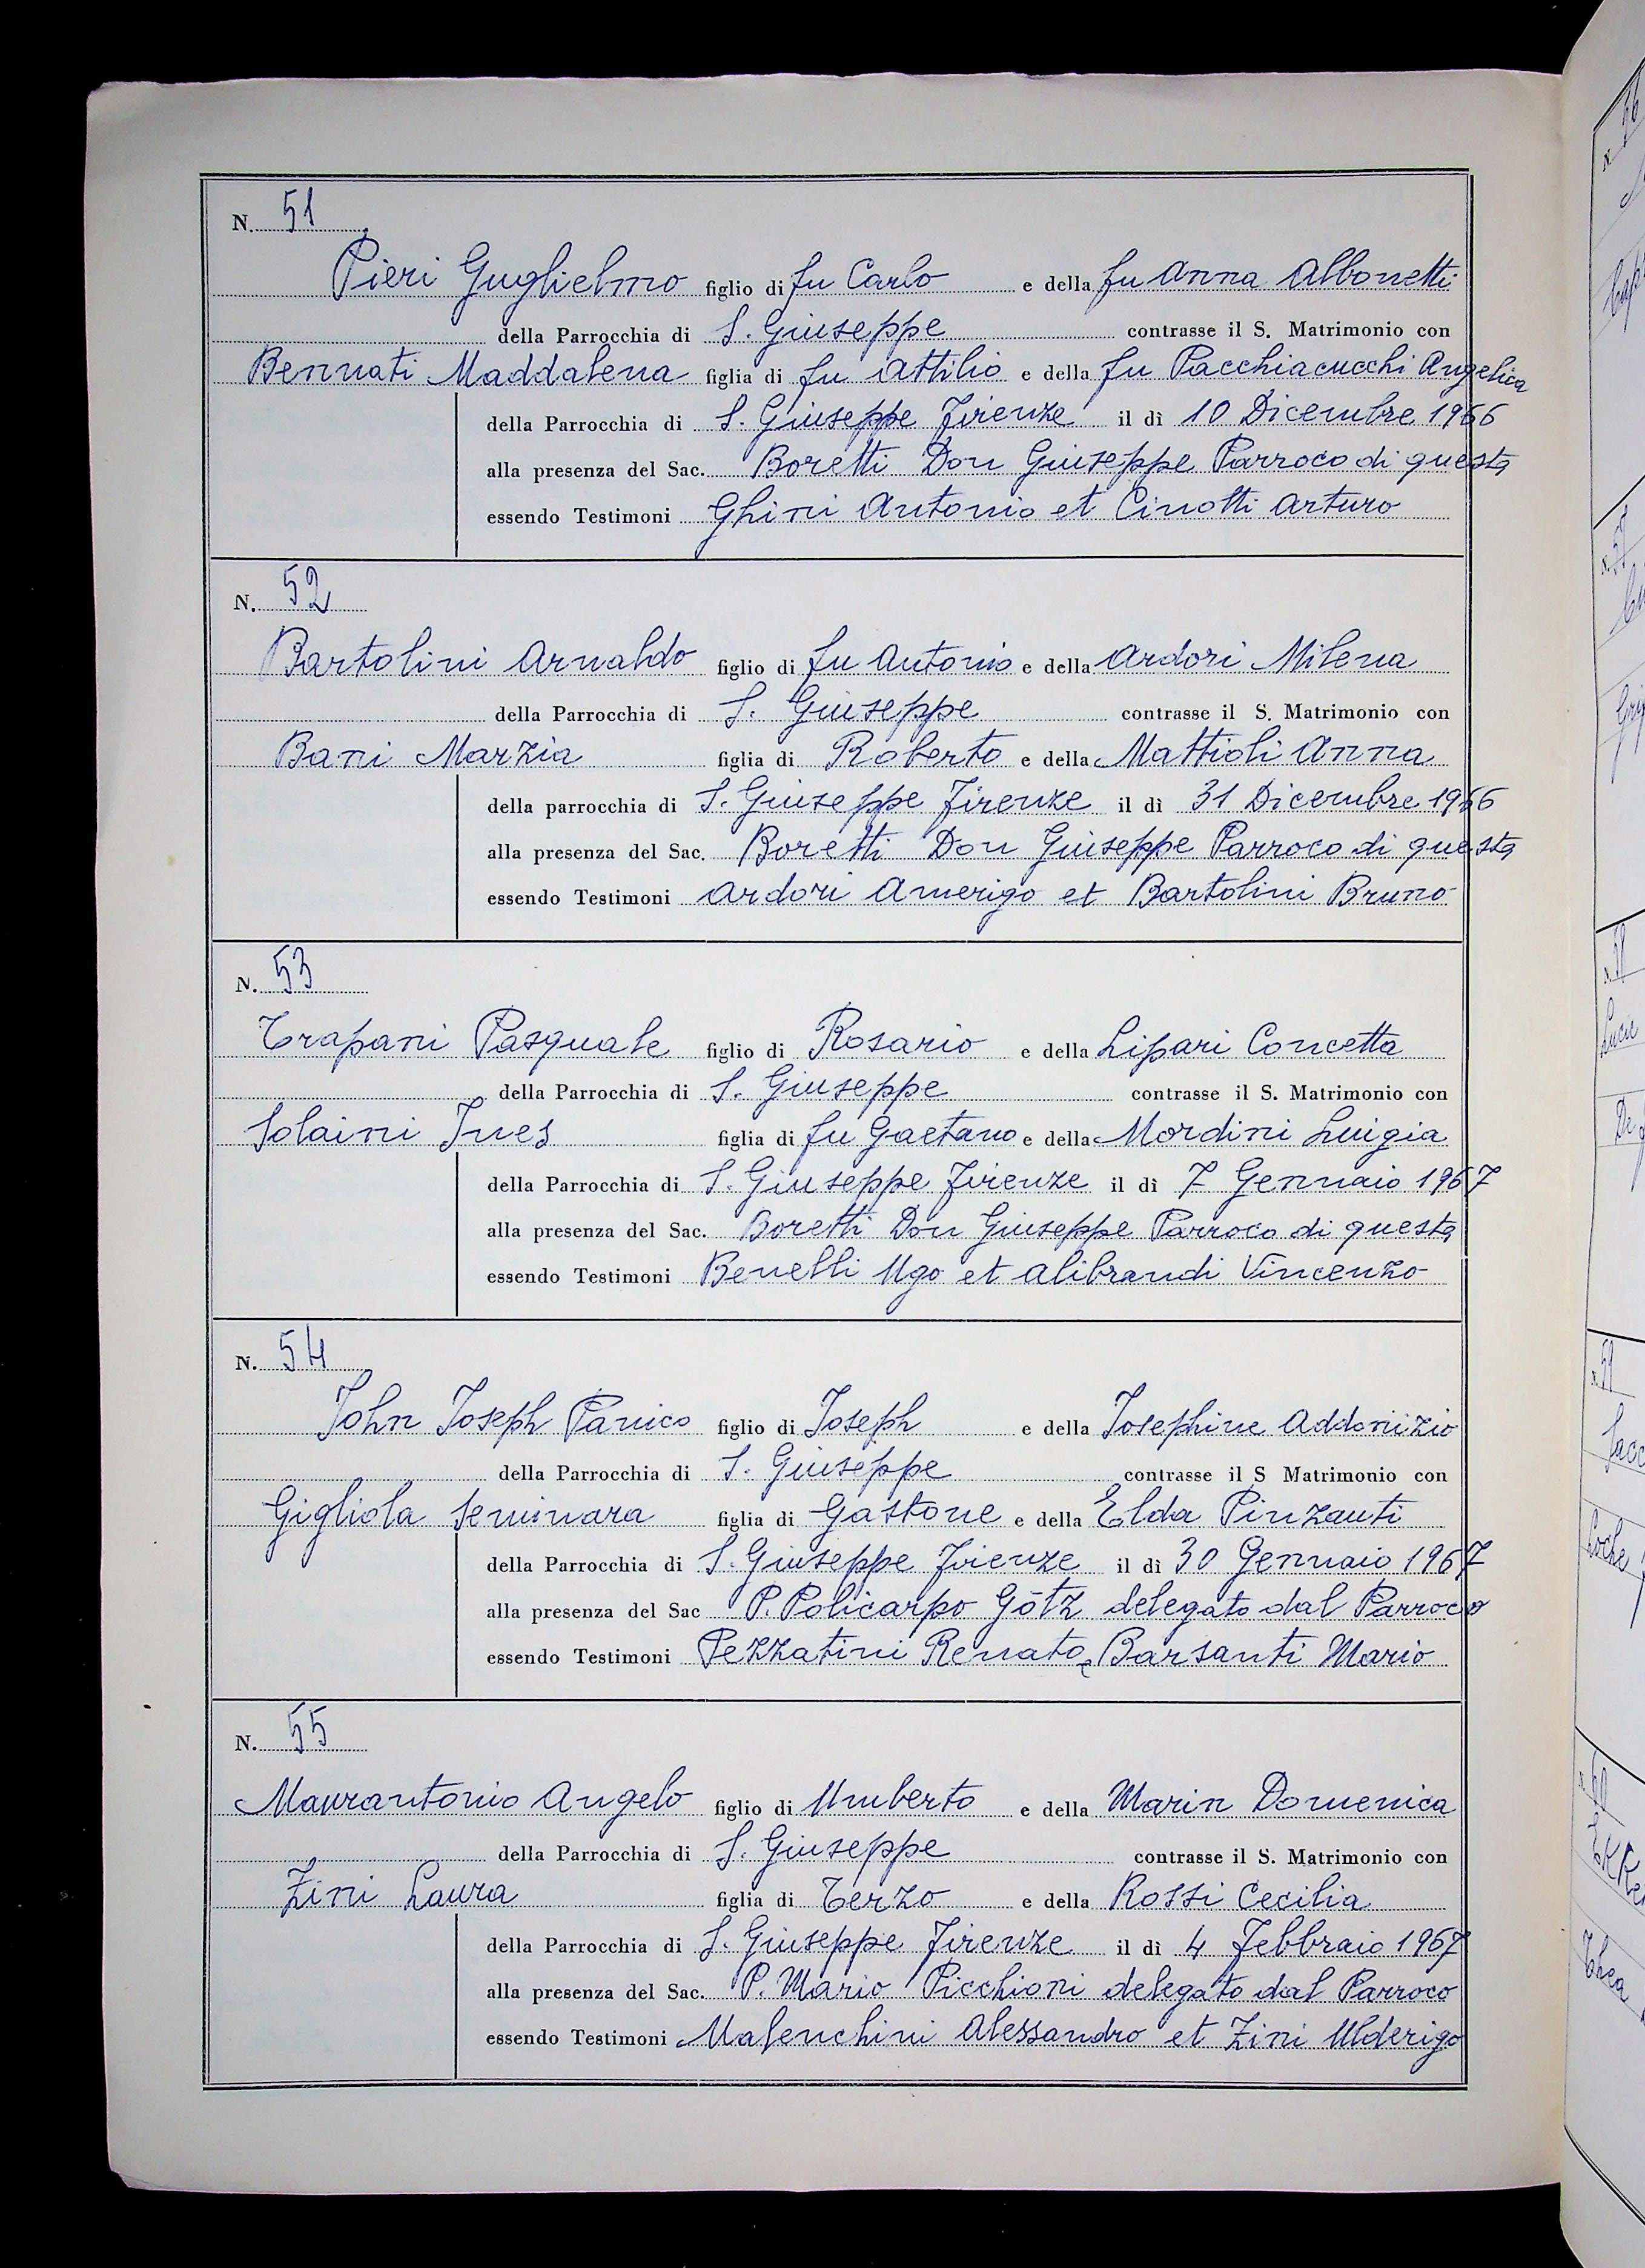 N. 51
Pieri Guglielmo figlio di fu Carlo e della fu Anna Albonetti
della Parrocchia di S. Giuseppe contrasse il S. Matrimonio con
Bennati Maddalena figlia di fu Attilio e della fu Pacchiacucchi Angelica
della Parrocchia di S. Giuseppe Firenze il dì 10 Dicembre 1966
alla presenza del Sac. Boretti Don Giuseppe Parroco di questa
essendo Testimoni Ghini Antonio et Cinotti Arturo
N. 52
Bartolini Arnaldo figlio di fu Antonio e della Ardori Milena
della Parrocchia di S. Giuseppe contrasse il S. Matrimonio con
Bani Marzia figlia di Roberto e della Mattioli Anna
della parrocchia di S. Giuseppe Firenze il dì 31 Dicembre 1966
alla presenza del Sac. Boretti Don Giuseppe Parroco di questa
essendo Testimoni Ardori Amerigo et Bartolini Bruno
N. 53
Trapani Pasquale figlio di Rosario e della Lipari Concetta
della Parrocchia di S. Giuseppe contrasse il S. Matrimonio con
Solaini Ines figlia di fu Gaetano e della Mordini Luigia
della Parrocchia di S. Giuseppe Firenze il dì 7 Gennaio 1967
alla presenza del Sac. Boretti Don Giuseppe Parroco di questa
essendo Testimoni Benelli Ugo et Alibrandi Vincenzo
N. 54
John Joseph Panico figlio di Joseph e della Josephine Addonizio
della Parrocchia di S. Giuseppe contrasse il S Matrimonio con
Gigliola Seminara figlia di Gastone e della Elda Pinzauti
della Parrocchia di S. Giuseppe Firenze il dì 30 Gennaio 1967
alla presenza del Sac P. Policarpo Götz delegato dal Parroco
essendo Testimoni Pezzatini Renato e Barsanti Mario
N. 55
Maurantonio Angelo figlio di Umberto e della Marin Domenica
della Parrocchia di S. Giuseppe contrasse il S. Matrimonio con
Zini Laura figlia di Terzo e della Rossi Cecilia
della Parrocchia di S. Giuseppe Firenze il dì 4 Febbraio 1967
alla presenza del Sac. P. Mario Picchioni delegato dal Parroco
essendo Testimoni Malenchini Alessandro et Zini Ulderigo